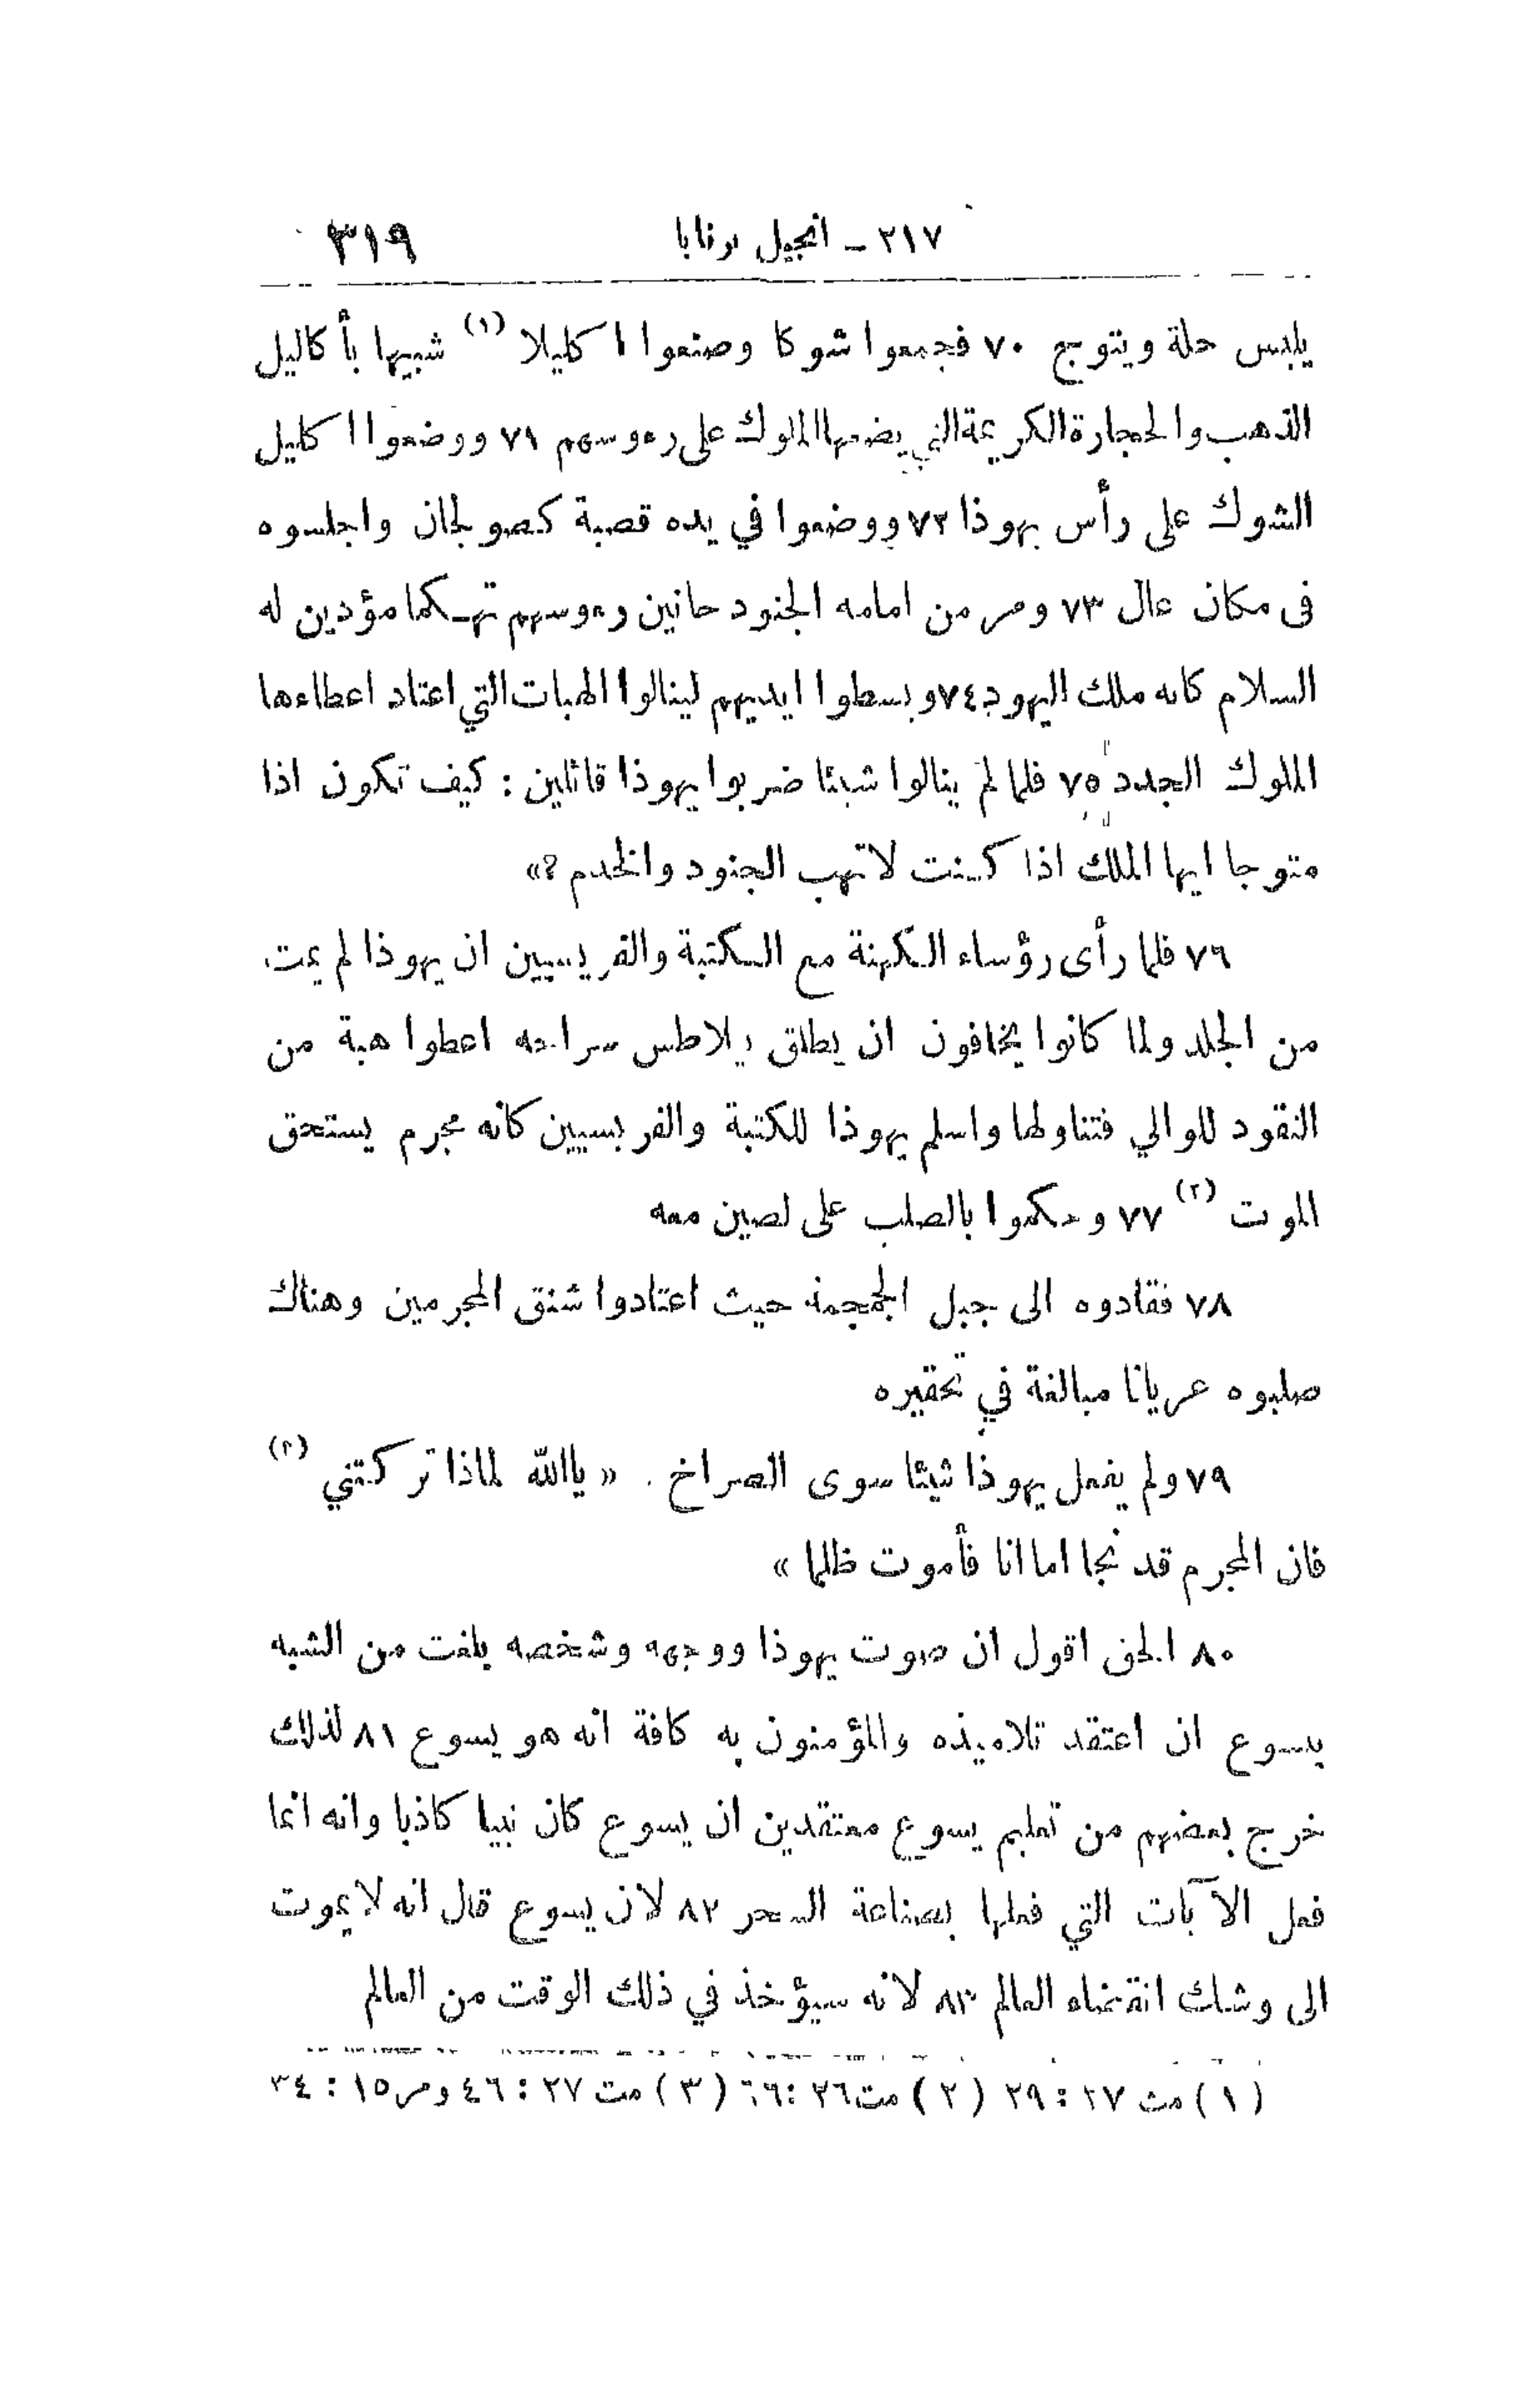 ٢١٧ - انجيل برنابا ٣١٩
يلبس حلة ويتوج ٧٠ فجمعوا شوكا وصنعوا اكليلا (١) شبيها بأكاليل
الذهب والحجارة الكريمة التي يضعها الملوك على رءوسهم ٧١ ووضعوا اكليل
الشوك على رأس يهوذا ٧٢ ووضعوا في يده قصبة كصولجان واجلسوه
فى مكان عال ٧٣ ومر من امامه الجنود حانين رءوسهم تهكما مؤدين له
السلام كانه ملك اليهود ٧٤ وبسطوا ايديهم لينالوا الهبات التي اعتاد اعطاءها
الملوك الجدد ٧٥ فلما لم ينالوا شيئا ضربوا يهوذا قائلين : كيف تكون اذا
متوجا ايها الملك اذا كنت لا تهب الجنود والخدم ؟»
٧٦ فلما رأى رؤساء الكهنة مع الكتبة والفريسيين ان يهوذا لم يمت
من الجلد ولما كانوا يخافون ان يطلق بيلاطس سراحه اعطوا هبة من
النقود للوالي فتناولها واسلم يهوذا للكتبة والفريسيين كانه مجرم يستحق
الموت (٢) ٧٧ وحكموا بالصلب على لصين معه
٧٨ فقادوه الى جبل الجمجمة حيث اعتادوا شنق المجرمين وهناك
صلبوه عريانا مبالغة في تحقيره
٧٩ ولم يفعل يهوذا شيئا سوى الصراخ . « ياالله لماذا تركتني (٣)
فان المجرم قد نجا اما انا فأموت ظلما »
٨٠ الحق اقول ان صوت يهوذا ووجهه وشخصه بلغت من الشبه
بيسوع ان اعتقد تلاميذه والمؤمنون به كافة انه هو يسوع ٨١ لذلك
خرج بعضهم من تعليم يسوع معتقدين ان يسوع كان نبيا كاذبا وانه انما
فعل الآيات التي فعلها بصناعة السحر ٨٢ لان يسوع قال انه لا يموت
الى وشك انقضاء العالم ٨٣ لانه سيؤخذ في ذلك الوقت من العالم
(١) مت ٢٧ : ٢٩ (٢) مت ٢٦ : ٦٦ (٣) مت ٢٧ : ٤٦ ومر ١٥ : ٣٤